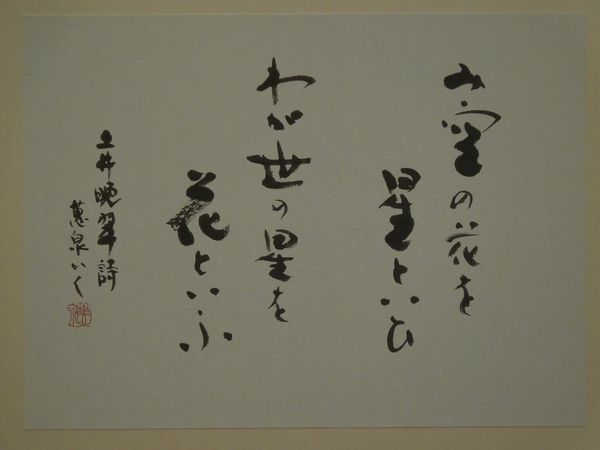 み空の花を
星といひ
わが世の星を
花といふ
土井晩翠詩
蕙泉いく